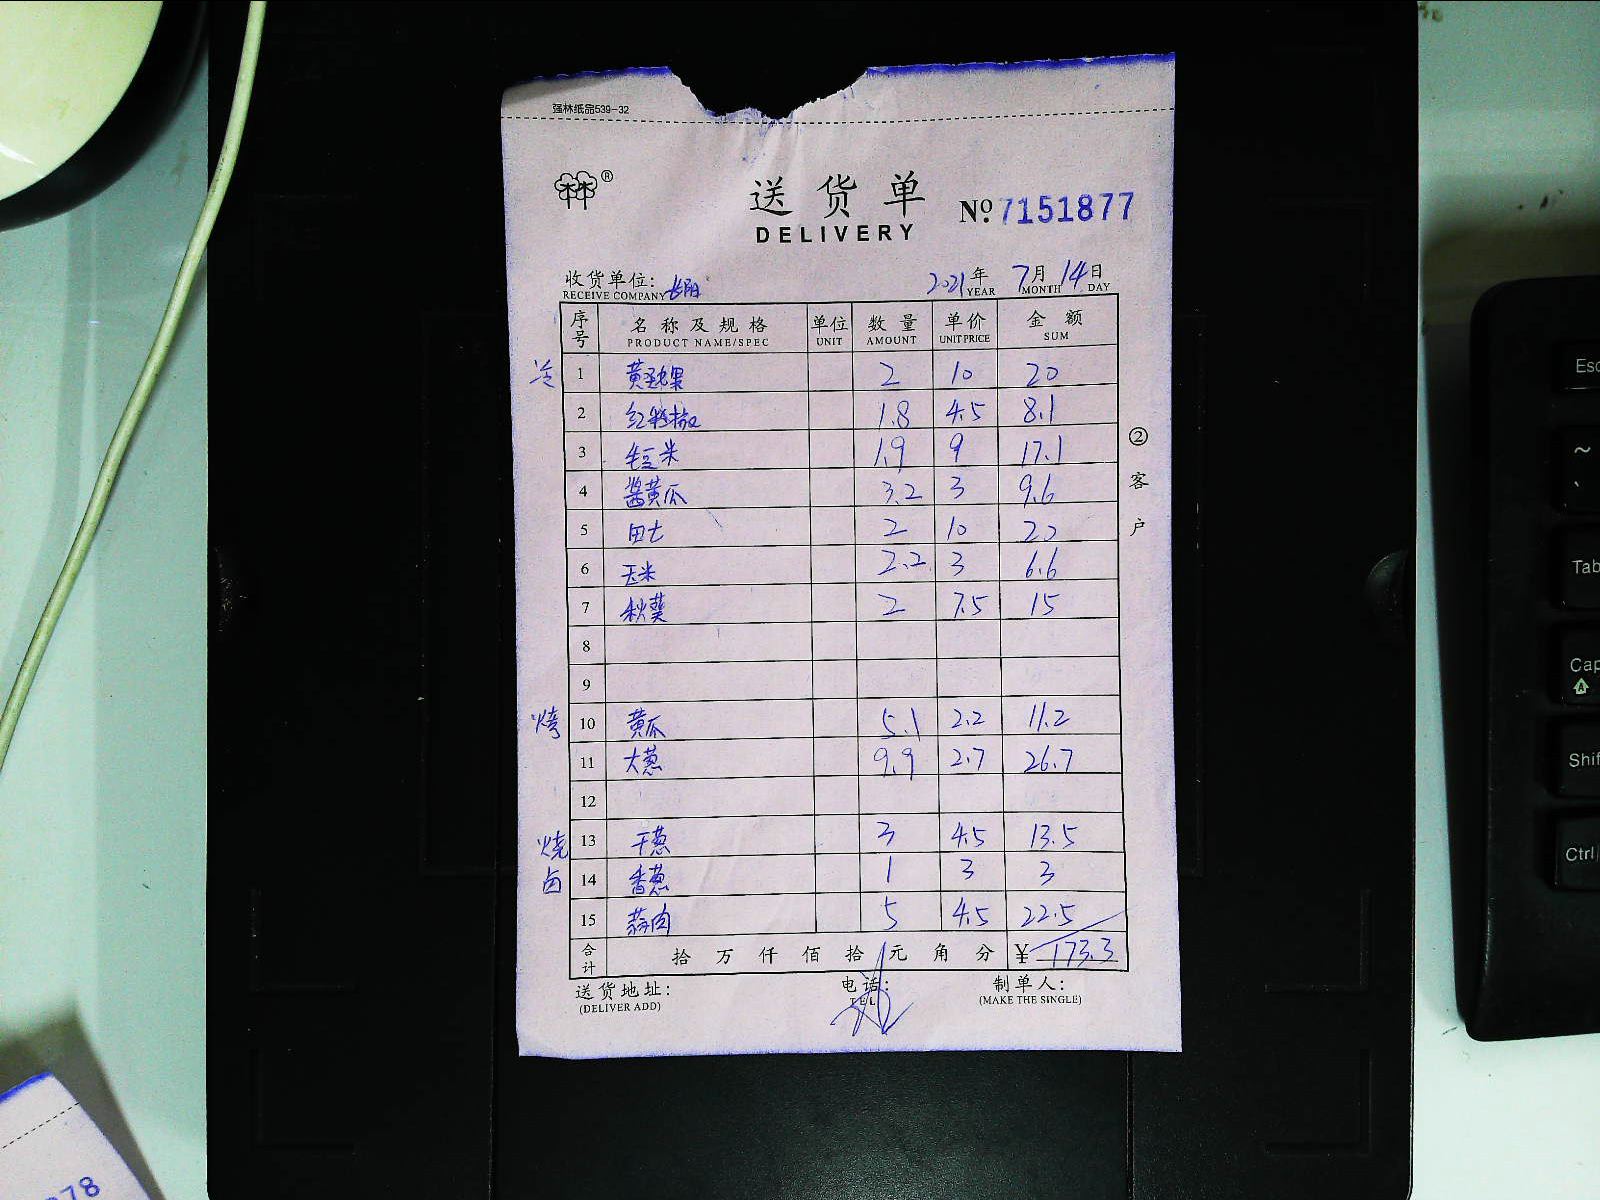 强林纸品539-32
林林®
送货单
DELIVERY
№ 7151877
收货单位: 长阳 2021年 7月 14日
RECEIVE COMPANY YEAR MONTH DAY
序号 名称及规格 单位 数量 单价 金额
PRODUCT NAME/SPEC UNIT AMOUNT UNIT PRICE SUM
冷 1 2 10 20
2 红 椒 1.8 4.5 8.1
3 毛豆米 1.9 9 17.1
4 酱黄瓜 3.2 3 9.6
5 2 10 20
6 玉米 2.2 3 6.6
7 秋葵 2 7.5 15
8
9
烤 10 黄瓜 5.1 2.2 11.2
11 大葱 9.9 2.7 26.7
12
烧 13 干葱 3 4.5 13.5
卤 14 香葱 1 3 3
15 蒜肉 5 4.5 22.5
合计 拾万仟佰拾元角分 ¥173.3
送货地址: 电话: 制单人:
(DELIVER ADD) TEL (MAKE THE SINGLE)
②客户
Esc
~
、
Tab
Cap
A
Shif
Ctrl
078